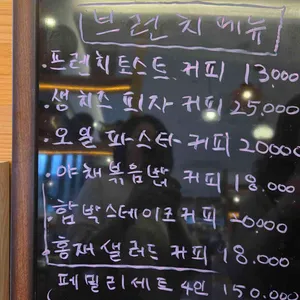 브런치메뉴
·프렌치토스트 커피 13,000
·생치즈 피자 커피 25,000
·오일 파스타 커피 20,000
·야채볶음밥 커피 18,000
·함박스테이크 커피 0,000
·훙제샐러드 커피 18.000
패밀리세트 4인 150.000